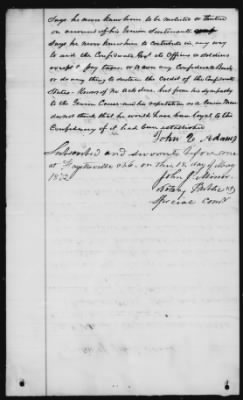 Says he never knew him to be molested or threatened
on account of his Union Sentiments
Says he never knew him to contribute in any way
to aid the Confederate Govt its Officers or soldiers
except to pay taxes or to own any Confederate Bonds
or do any thing to sustain the Credit of the Confederate
States. Knows of no acts done, but from his sympathy
to the Union Cause and his reputation as a Union Man
does not think that he would have been loyal to the
Confederacy if it had been established
John Q Adams
Subscribed and sworn to before me
at Fayetteville N.C. on this 18 day of May
1872
John J. Minor
Notary Public &
Special Comr